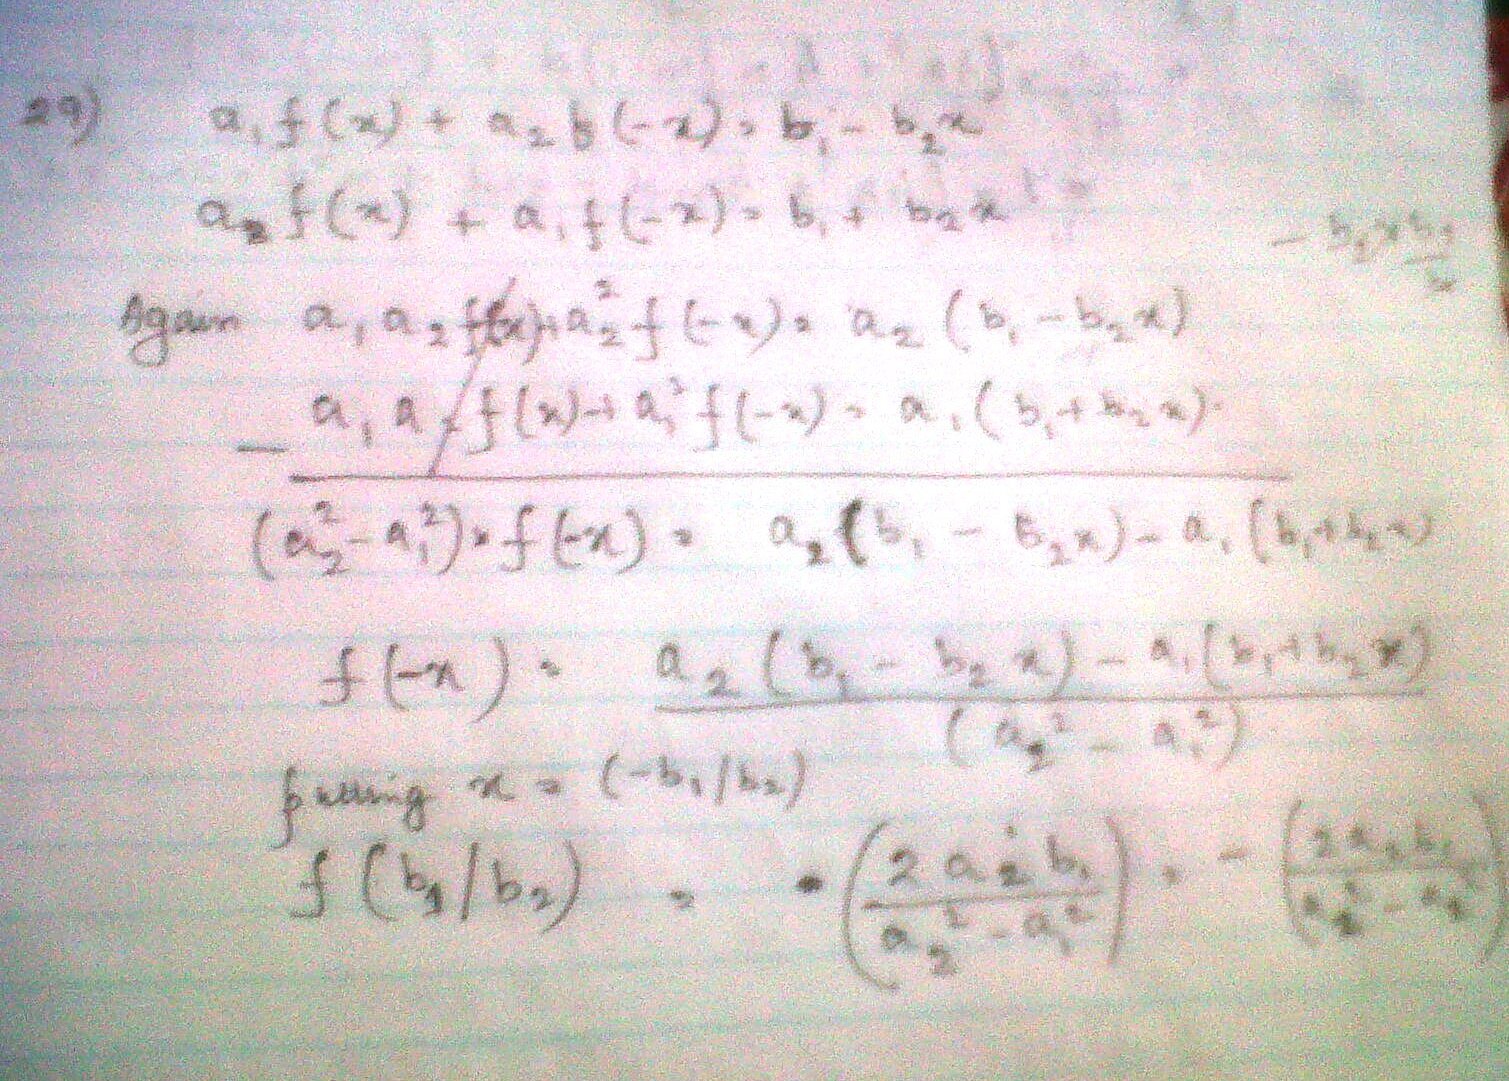 29) a₁f(x) + a₂b(-x) = b₁ - b₂x
a₂f(x) + a₁f(-x) = b₁ + b₂x
Again a₁a₂f(x) + a₂²f(-x) = a₂(b₁ - b₂x)
- a₁a₂f(x) + a₁²f(-x) = a₁(b₁ + b₂x)
(a₂² - a₁²) × f(-x) = a₂(b₁ - b₂x) - a₁(b₁ + b₂x)
f(-x) = a₂(b₁ - b₂x) - a₁(b₁ + b₂x) / (a₂² - a₁²)
putting x = (-b₁/b₂)
f(b₁/b₂) = (2a₂b₁ / a₂² - a₁²) = -